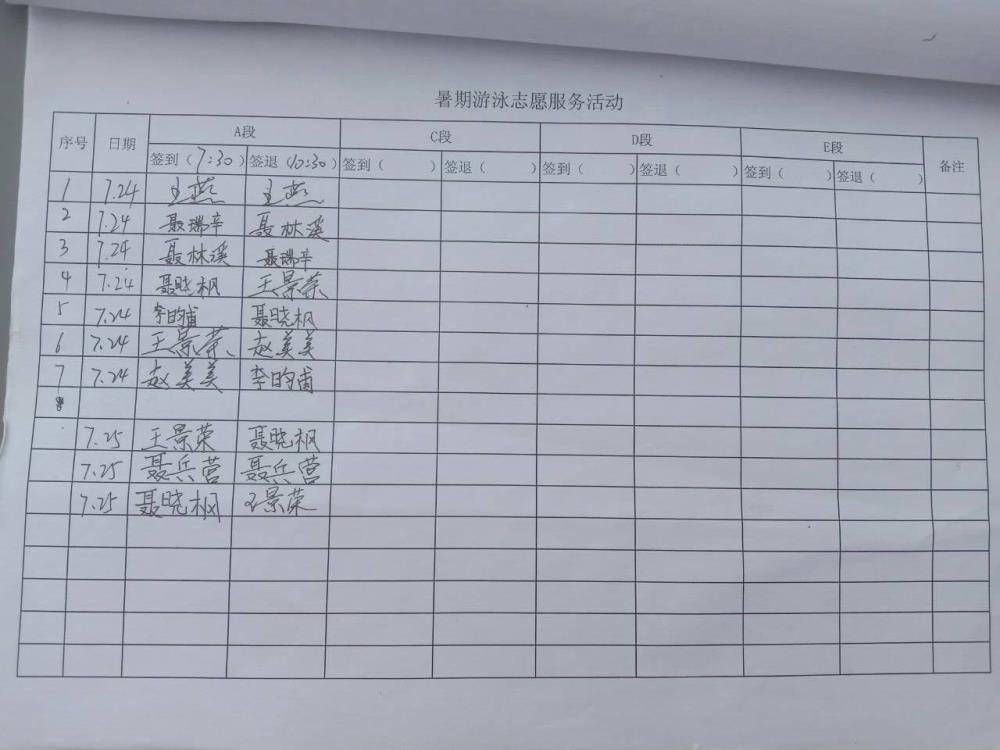 暑期游泳志愿服务活动
序号 日期 A段 C段 D段 E段 备注
签到(7:30) 签退(10:30) 签到( ) 签退( ) 签到( ) 签退( ) 签到( ) 签退( )
1 7.24 王燕 王燕
2 7.24 聂瑞辛 聂林溪
3 7.24 聂林溪 聂瑞辛
4 7.24 聂晓枫 王景荣
5 7.24 李昀甫 聂晓枫
6 7.24 王景荣 赵美美
7 7.24 赵美美 李昀甫
7.25 王景荣 聂晓枫
7.25 聂兵营 聂兵营
7.25 聂晓枫 王景荣